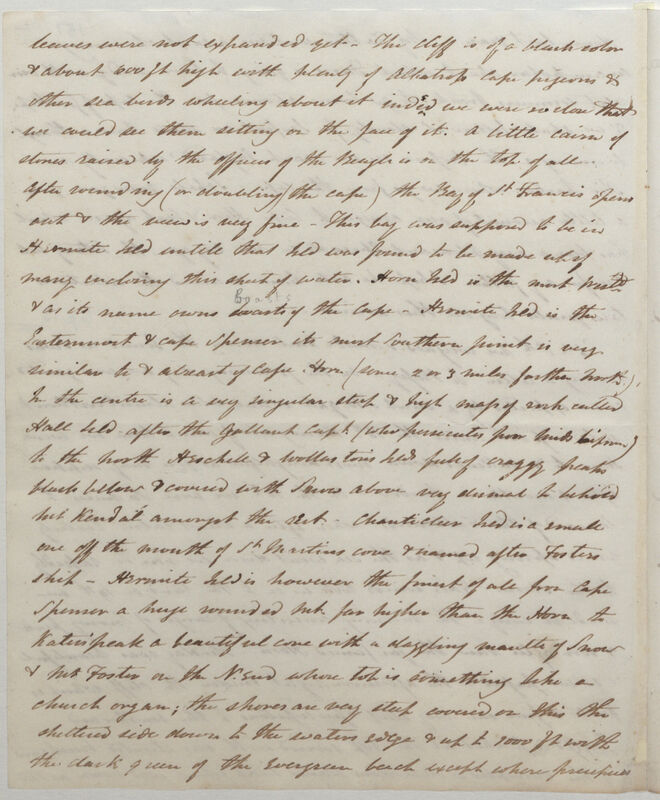 leaves were not expanded yet - The cliff is of a black color
& about 600 ft high with plenty of Albatross cape pigeons &
other sea birds wheeling about it indeed we were so close that
we could see them sitting on the face of it. A little cairn of
stones raised by the officers of the Beagle is on the top of all
After rounding (or doubling the cape) the Bay of St Francis opens
out & the view is very fine - This bay was supposed to be in
Hermite Isld untill that Isld was found to be made up of
many enclosing this sheet of water. Horn Isld is the most
& as its name owns boasts of the Cape - Hermite Isld is the
Easternmost & cape Spenser its most Southern point is very
similar to & abreast of Cape Horn (some 2 or 3 miles further North),
In the centre is a very singular steep & high mass of rock called
Hall Isld after the gallant Capt. (who persecutes poor midshipmen)
to the north Herchell & Wollastons Islds full of craggy peaks
black below & covered with Snow above very dismal to behold
Mt Kendal amongst the rest - Chanticleer Isld is a small
one off the mouth of St Martins cove & named after Fosters
ship - Hermite Isld is however the finest of all from Cape
Spenser a huge rounded Mt. far higher than the Horn to
Katers peak a beautiful cone with a dazzling mantle of Snow
& Mt Foster on the N. End whose top is something like a
church organ; the shores are very steep covered on this the
sheltered side down to the waters edge & up to 1000 ft with
the dark green of the Evergreen beech except where precipices